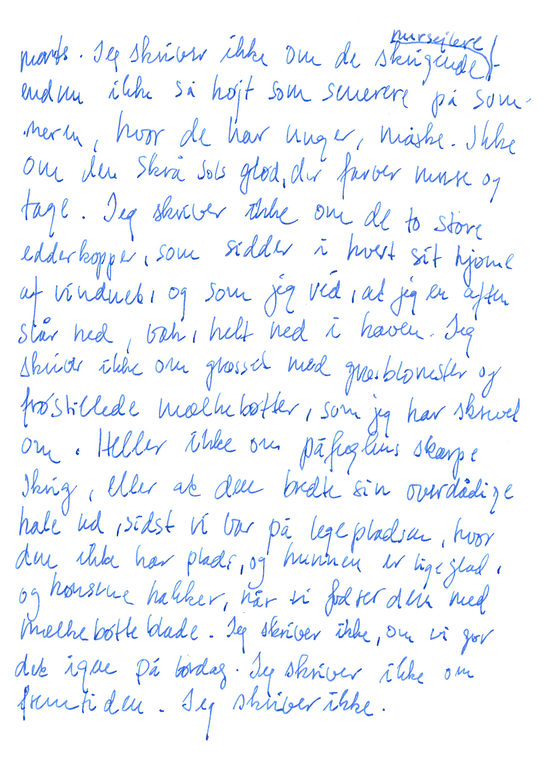 mursejlere
Jeg skriver ikke om de skrigende
endnu ikke så højt som senere på som-
meren, hvor de har unger, måske. Ikke
om den skrå sols glød, der farver mure og
tage. Jeg skriver ikke om de to store
edderkopper, som sidder i hvert sit hjørne
af vinduet, og som jeg ved, at jeg en aften
slår ned, bah, helt ned i haven. Jeg
skriver ikke om græsset med græsblomster og
frøstillede mælkebøtter, som jeg har skrevet
om. Heller ikke om påfuglens skarpe
skrig, eller at den bredte sin overdådige
hale ud, sidst vi var på legepladsen, hvor
den ikke har plads, og hunnen er ligeglad,
og hønsene hakker, når vi fodrer dem med
mælkebøtteblade. Jeg skriver ikke, om vi gør
det igen på lørdag. Jeg skriver ikke om
fremtiden. Jeg skriver ikke.